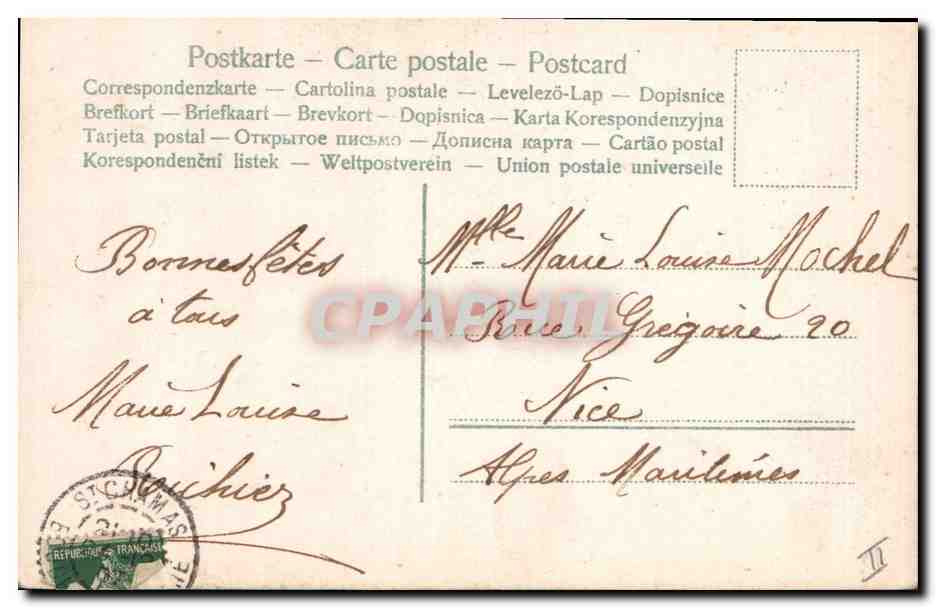 Postkarte – Carte postale – Postcard
Correspondenzkarte — Cartolina postale — Levelező-Lap — Dopisnice
Brefkort — Briefkaart — Brevkort — Dopisnica — Karta Korespondenzyjna
Tarjeta postal — Открытое письмо — Дописна карта — Cartão postal
Korespondenční listek — Weltpostverein — Union postale universelle
Bonnes fêtes
à tous
Marie Louise
Mlle Marie Louise Mochel
Grégoire 20
Nice
Alpes Maritimes
CPAPHIL
ST CHAMAS
REPUBLIQUE FRANÇAISE
II